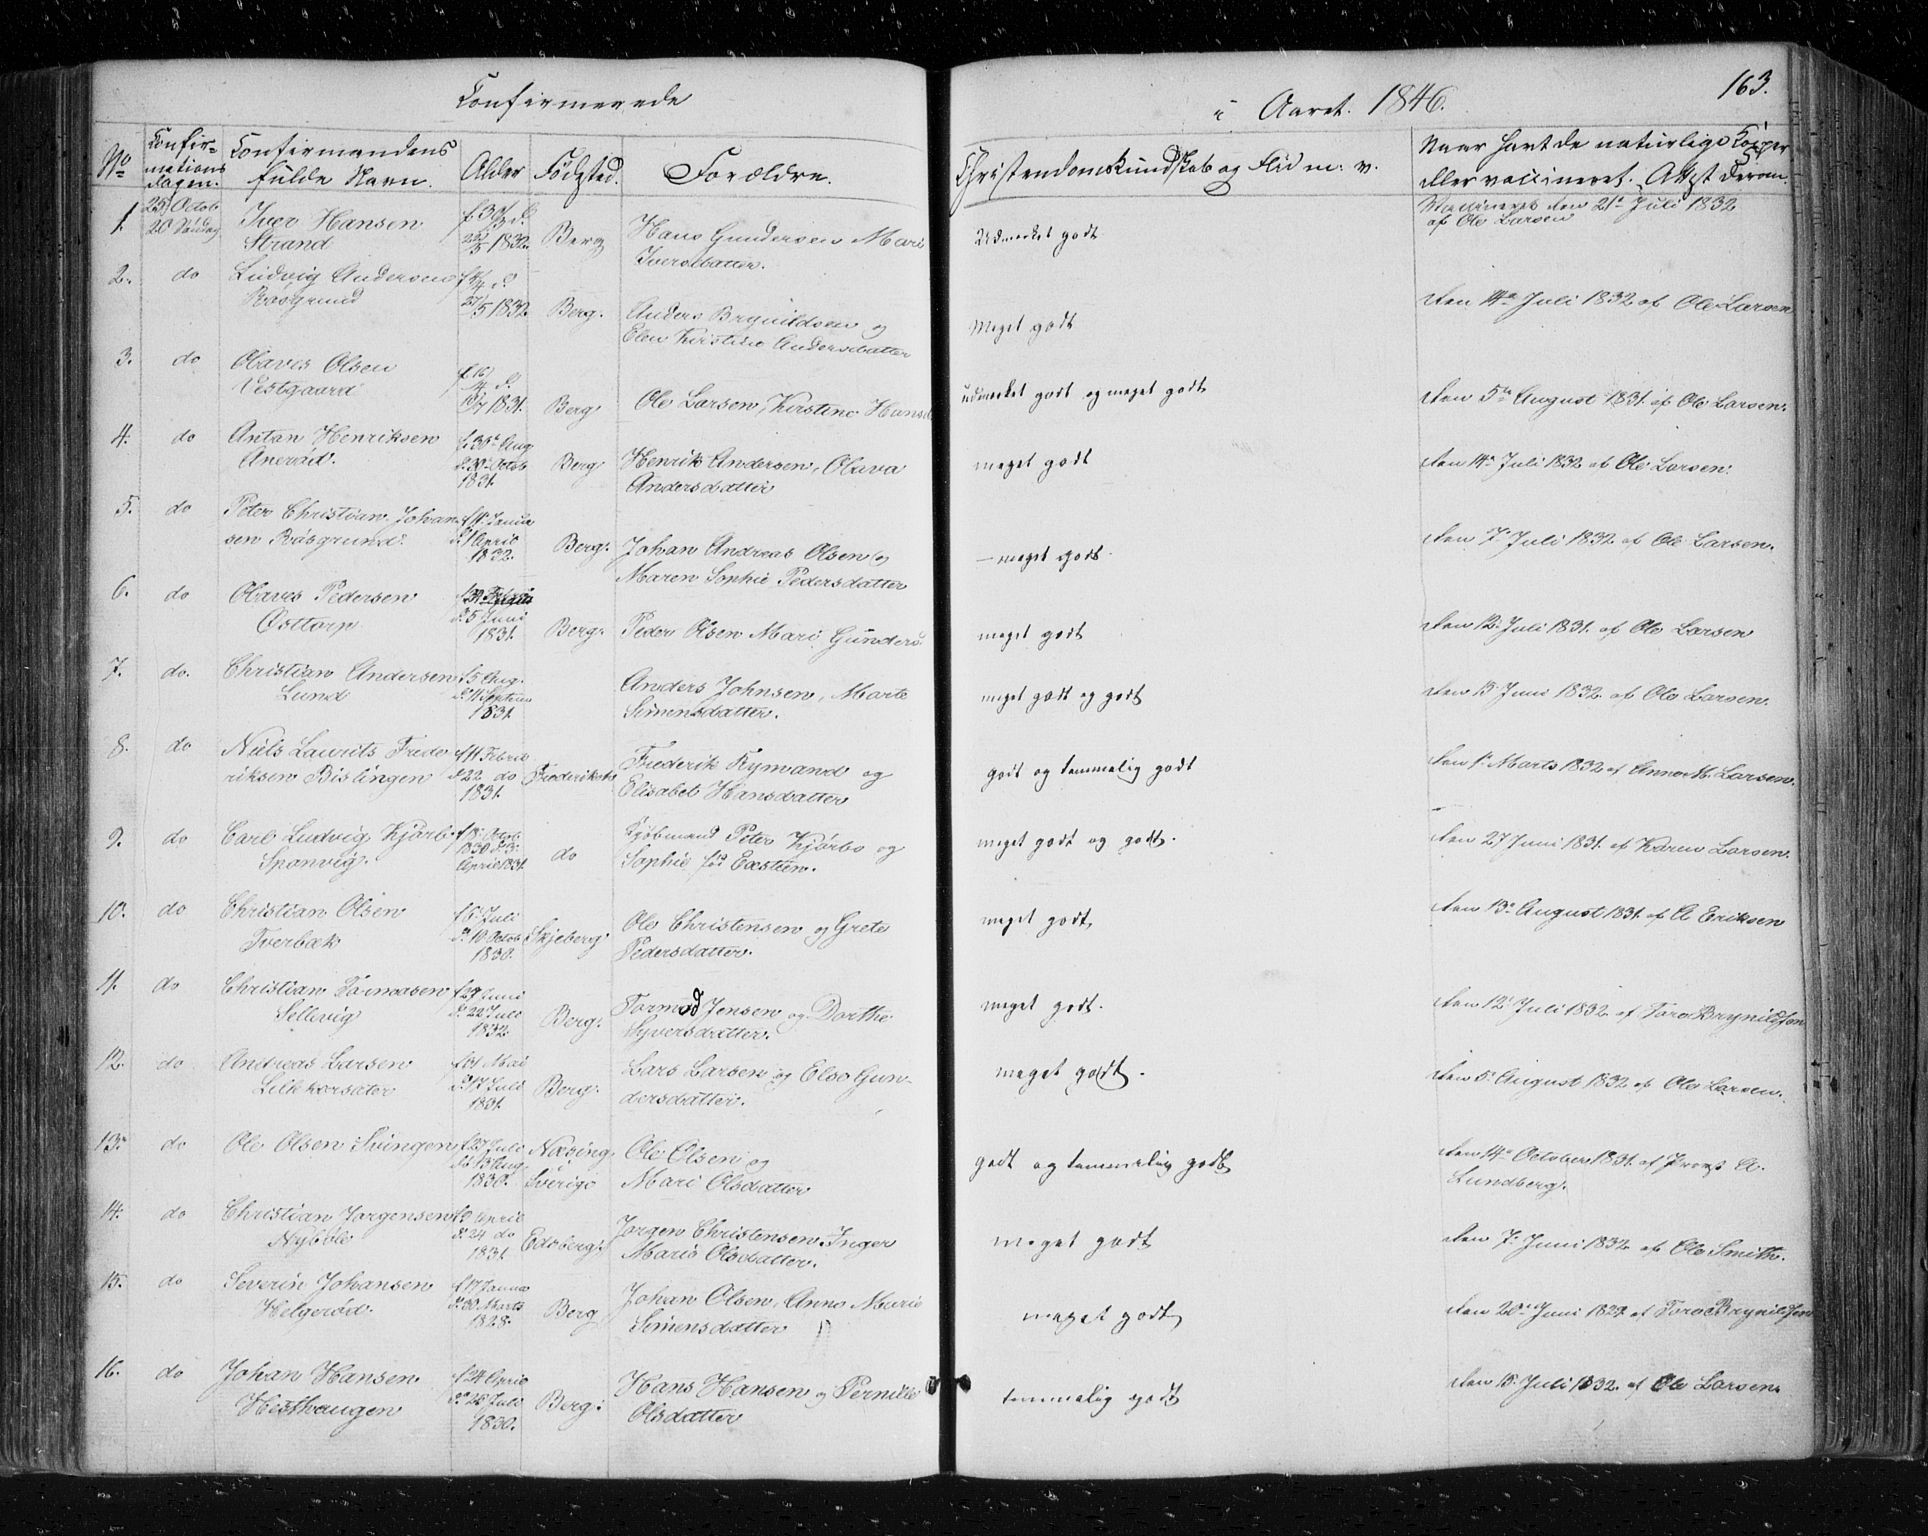 Confirmerede
i Aaret. 1846.
163.
No
Confir-
mations
dagen.
Confirmandens
fulde Navn.
Alder
Fødested.
Forældre.
Christendomskundskab og Flid m. v.
Naar havt de naturlige Kopper
eller vaccineret. Attest derom.
1. 25 Octob
20 Søndag
Iver Hansen
Strand
1832. Berg
Hans Gundersen Mari
Iversdatter.
Udmerket godt
Vaccineret den 21de Juli 1832
af Ole Larsen
2. do Ludvig Andersen
Røsgrund
27/5 1832. Berg.
Anders Brynildsen og
Elen Kirstine Andersdatter
Meget godt
den 14de Juli 1832 af Ole Larsen
3. do Olaves Olsen
Vestgaard
1831. Berg.
Ole Larsen, Kirstine Hansd
udmerket godt og meget godt
den 5te August 1831. af Ole Larsen.
4. do Anton Henriksen
Anerød.
f. 31te Aug
d. 30te Octob
1831.
Berg.
Henrik Andersen, Olava
Andersdatter
meget godt
den 14de Juli 1832 af Ole Larsen.
5. do Peter Christian Johan
sen Røsgrund.
f 11te Janua
d. 1 April
1832.
Berg.
Johan Andreas Olsen og
Maren Sophie Pedersdatter
– meget godt.
den 7de Juli 1832 af Ole Larsen.
6. do Olaves Pedersen
Østtorp
d. 5 Juni
1831.
Berg.
Peder Olsen Mari Gunders
meget godt
den 12. Juli 1831. af Ole Larsen
7. do. Christian Andersen
Lund
f. 5 Aug.
d. 11 Septem
1831.
Anders Johnsen, Marte
Simensdatter.
meget godt og godt
den 13 Juni 1832. af Ole Larsen.
8. do Niels Laurits Frede
riksen Bislingen
f 11 Febru
d 22 do
1831.
Frederiksh.
Frederik Rymand og
Elisabet Hansdatter
godt og temmelig godt
den 1. Marts 1832 af Anne M. Larsen.
9. do Carl Ludvig Kjørbo
Spønvig.
f 18. Octob.
1830 d. 3.
April 1831
do
Kjøbmand Peter Kjørbo og
Sophie fød Exstien.
meget godt og godt.
den 27 Juni 1831. af Karen Larsen.
10. do Christian Olsen
Tverbæk
f 6. Juli
d. 10 Octob
1830.
Skjeberg.
Ole Christensen og Grete
Pedersdatter.
meget godt
den 13de August 1831. af A Eriksen
11. do Christian Tormodsen
Sellevig
f 29 Juni
d. 22 Juli
1832
Berg.
Tormod Jensen og Dorthe
Syversdatter.
meget godt.
den 12. Juli 1832. af Tore Brynildsen
12. do Andreas Larsen
Lille korsæter
f 31 Mai
d. 17 Juli
1831.
Berg.
Lars Larsen og Else Gun-
dersdatter.
meget godt.
den 5. August 1832 af Ole Larsen.
13. do Ole Olsen Svingen
f. 27 Juli
d. 13 Aug.
1830.
Næsinge
i
Sverige
Ole Olsen og
Mari Olsdatter
godt og temmelig godt
den 14de October 1831. af Provst A.
Lundberg.
14. do Christian Jørgensen
Nybøle
April
d. 24 do
1831.
Edsberg.
Jørgen Christensen Inger
Marie Olsdatter.
meget godt
den 7. Juni 1832 af Ole Smith.
15. do Severin Johansen
Helgerød.
f. 17 Janua
d. 30 Marts
1828.
Berg
Johan Olsen, Anne Marie
Simensdatter
meget godt
den 20de Juni 1829 af Tore Brynildsen
16. do Johan Hansen
Hesthaugen
f 24 April
d. 26 Juli
1830.
Berg.
Hans Hansen og Pernille
Olsdatter
temmelig godt
den 13. Juli 1832. af Ole Larsen.